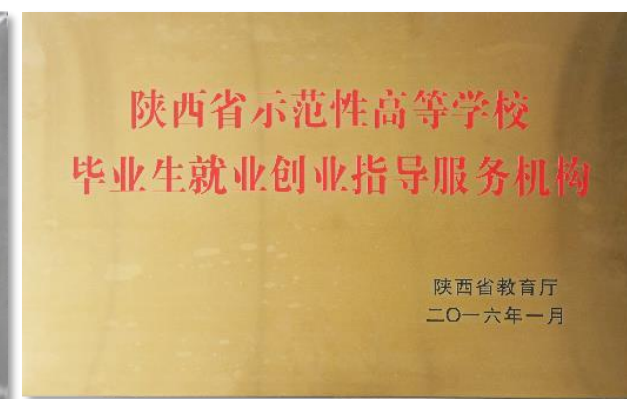 陕西省示范性高等学校
毕业生就业创业指导服务机构
陕西省教育厅
二〇一六年一月